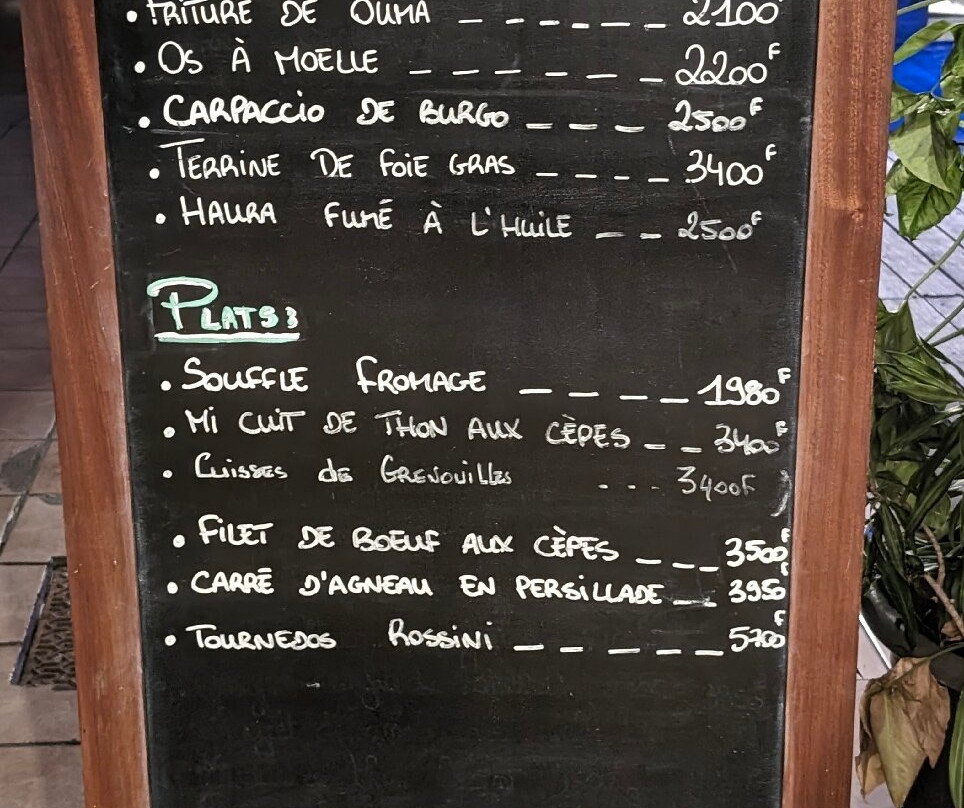 • FRITURE DE OUMA _ _ _ _ _ _ 2100
• OS À MOELLE _ _ _ _ _ _ 2200F
• CARPACCIO DE BURGO _ _ _ 2500F
• TERRINE DE FOIE GRAS _ _ _ _ 3400F
• HAURA FUMÉ À L'HUILE _ _ 2500F
PLATS :
• SOUFFLE FROMAGE _ _ _ _ 1980F
• MI CUIT DE THON AUX CÈPES _ _ 3400F
• Cuisses de GRENOUILLES ... 3400F
• FILET DE BOEUF AUX CÈPES _ _ _ 3500F
• CARRÉ D'AGNEAU EN PERSILLADE _ _ 3950F
• TOURNEDOS ROSSINI _ _ _ _ _ 5700F